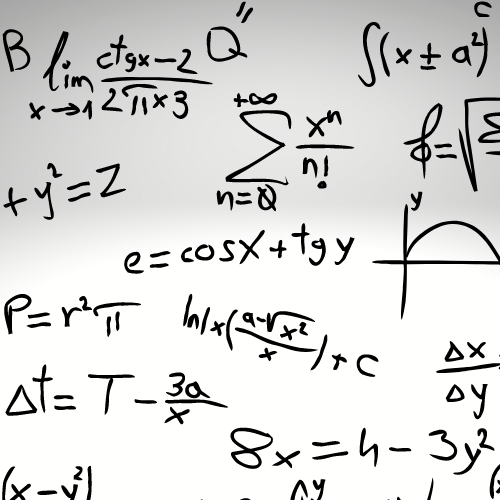 B lim x→1 ctgx-2 / 2πx3 Q"
∫(x ± a²) c
+∞ ∑ n=0 xⁿ/n!
+ y² = z
y
e = cosx + tg y
P = r²π
ln/x(a-√x²/x)/+ c
Δx/Δy
Δt = T - 3a/x
8x = h - 3y²
(x-y²)